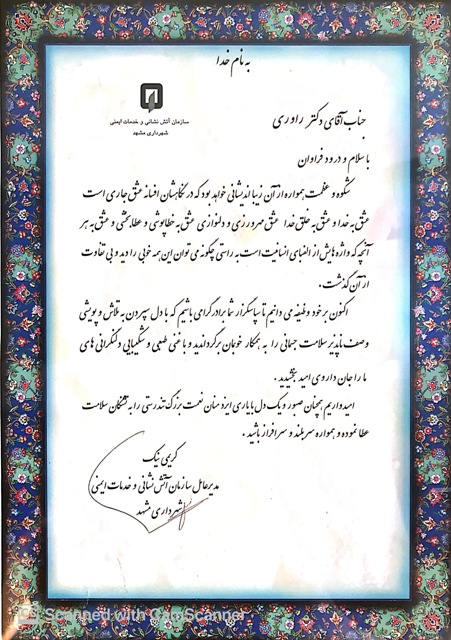 به نام خدا
سازمان آتش نشانی و خدمات ایمنی
شهرداری مشهد
جناب آقای دکتر راوری
با سلام و درود فراوان
شکوه و عظمت همواره از آن زیبا اندیشانی خواهد بود که در نگاهشان افسانه عشق جاری است
عشق به خدا و عشق به خلق خدا عشق مهرورزی و دلنوازی عشق به خطاپوشی و عطابخشی و عشق به هر
آنچه که واژه هایش از الفبای انسانیت است به راستی چگونه می توان این همه خوبی را دید و بی تفاوت
از آن گذشت.
اکنون بر خود وظیفه می دانیم تا سپاسگزار شما برادر گرامی باشیم که با دل سپردن به تلاش و پویشی
وصف ناپذیر سلامت جسمانی را به همکار خوبمان برگرداندید و با غنی طبعی و شکیبایی دلنگرانی های
ما را جان داروی امید بخشیدید .
امیدواریم همچنان صبور و یک دل با یاری ایزد منان نعمت بزرگ تندرستی را به تشنگان سلامت
عطا نموده و همواره سربلند و سرافراز باشید .
کریمی نیک
مدیرعامل سازمان آتش نشانی و خدمات ایمنی
شهرداری مشهد
Scanned with CamScanner